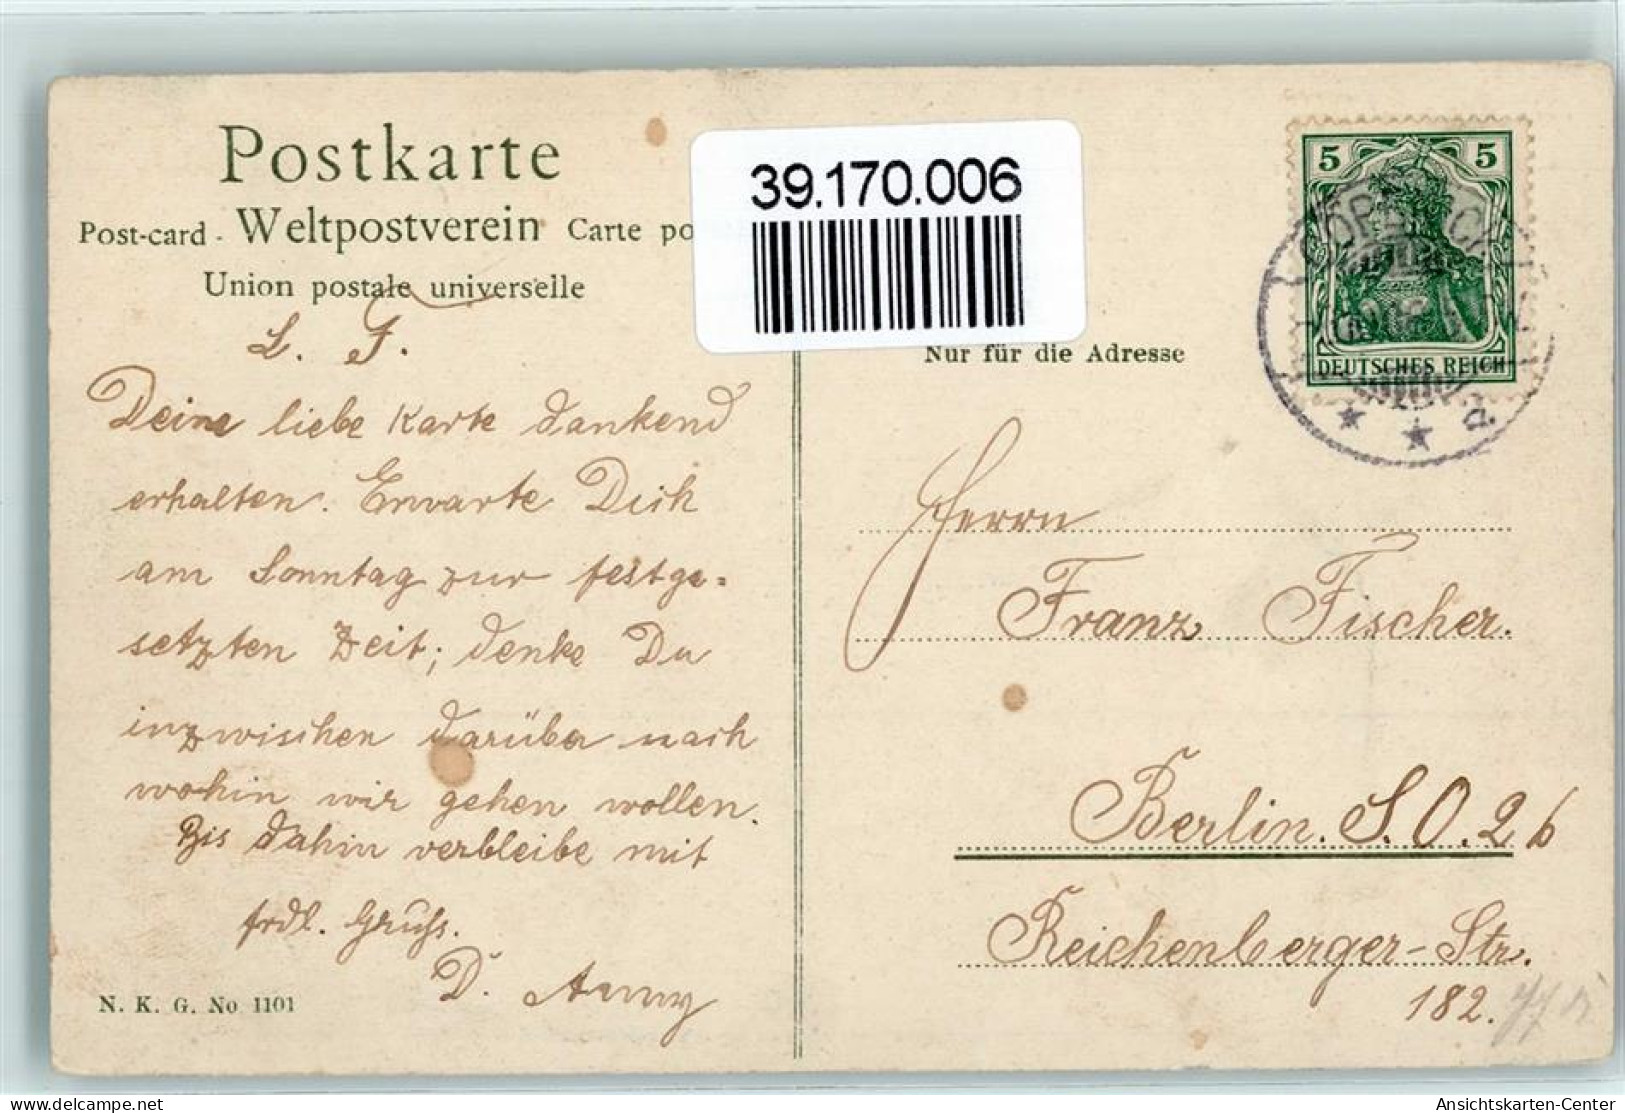 Postkarte
Post-card - Weltpostverein Carte po
Union postale universelle
39.170.006
Nur für die Adresse
5 5
DEUTSCHES REICH
L. F.
Deine liebe Karte dankend
erhalten. Erwarte Dich
am Sonntag zur festge-
setzten Zeit; denke Du
inzwischen darüber nach
wohin wir gehen wollen.
Bis dahin verbleibe mit
frdl. Gruß.
D. Anny
N. K. G. No 1101
Herrn
Franz Fischer.
Berlin. S. O. 26
Reichenberger-Str.
182.
Ansichtskarten-Center